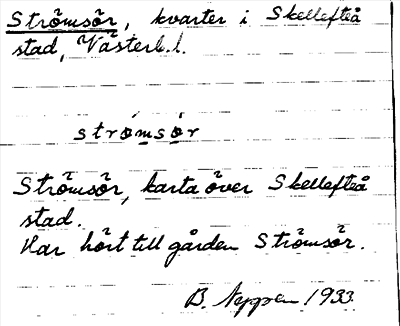 Strömsör, kvarter i Skellefteå
stad, Västerb.l.
strömsör
Strömsör, karta över Skellefteå
stad.
Har hört till gården Strömsör.
B. Nyppen 1933.